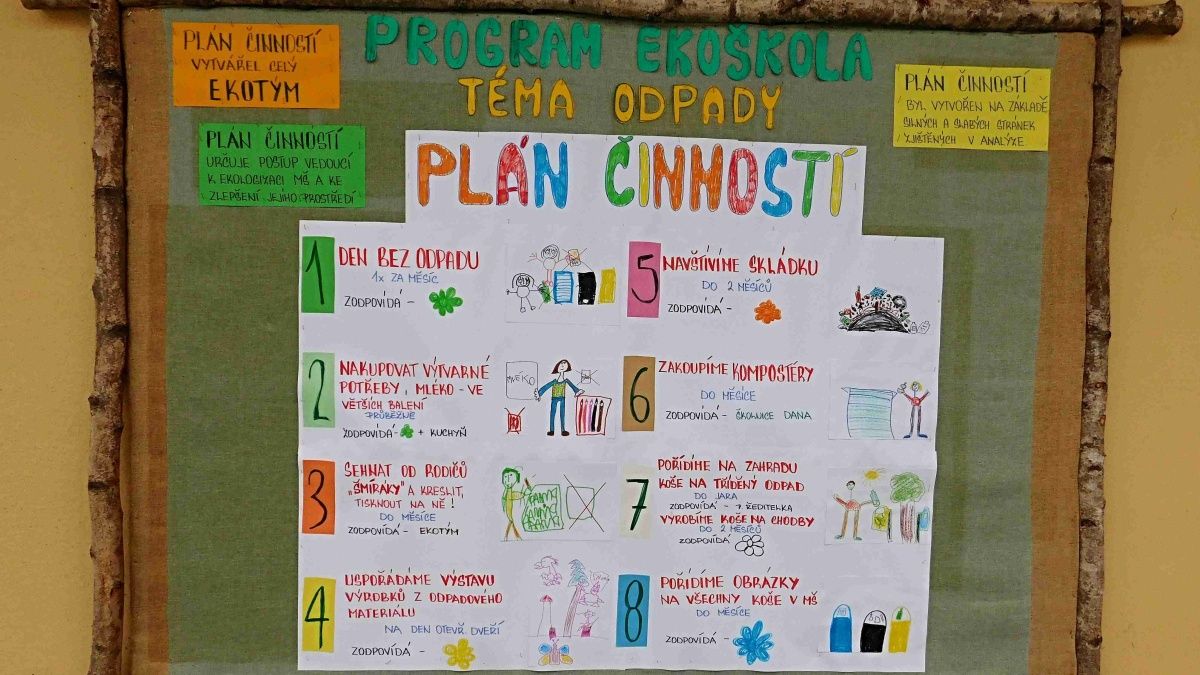 PROGRAM EKOŠKOLA
TÉMA ODPADY
PLÁN ČINNOSTÍ
VYTVÁŘEL CELÝ
EKOTÝM
PLÁN ČINNOSTÍ
URČUJE POSTUP VEDOUCÍ
K EKOLOGIZACI MŠ A KE
ZLEPŠENÍ JEJÍHO PROSTŘEDÍ
PLÁN ČINNOSTÍ
BYL VYTVOŘEN NA ZÁKLADĚ
SILNÝCH A SLABÝCH STRÁNEK
ZJIŠTĚNÝCH V ANALÝZE
PLÁN ČINNOSTÍ
1 DEN BEZ ODPADU
1x ZA MĚSÍC
ZODPOVÍDÁ -
2 NAKUPOVAT VÝTVARNÉ
POTŘEBY, MLÉKO - VE
VĚTŠÍCH BALENÍ
PRŮBĚŽNĚ
ZODPOVÍDÁ - + KUCHYŇ
MLÉKO
3 SEHNAT OD RODIČŮ
„ŠMÍRÁKY" A KRESLIT,
TISKNOUT NA NĚ!
DO MĚSÍCE
ZODPOVÍDÁ - EKOTÝM
4 USPOŘÁDÁME VÝSTAVU
VÝROBKŮ Z ODPADOVÉHO
MATERIÁLU
NA DEN OTEVŘ. DVEŘÍ
ZODPOVÍDÁ -
5 NAVŠTÍVÍME SKLÁDKU
DO 2 MĚSÍCŮ
ZODPOVÍDÁ -
6 ZAKOUPÍME KOMPOSTÉRY
DO MĚSÍCE
ZODPOVÍDÁ - ŠKOLNICE DANA
7 POŘÍDÍME NA ZAHRADU
KOŠE NA TŘÍDĚNÝ ODPAD
DO JARA
ZODPOVÍDÁ - P. ŘEDITELKA
VYROBÍME KOŠE NA CHODBY
DO 2 MĚSÍCŮ
ZODPOVÍDÁ
8 POŘÍDÍME OBRÁZKY
NA VŠECHNY KOŠE V MŠ
DO MĚSÍCE
ZODPOVÍDÁ -